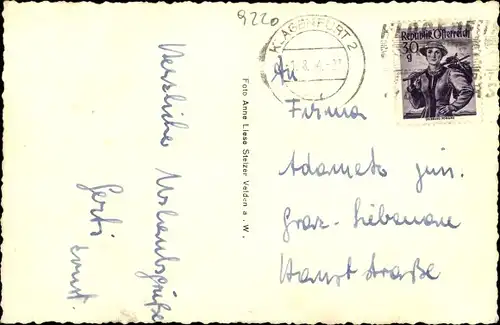 9220
KLAGENFURT 2
Republik Österreich
30 g
Herzliche Urlaubsgrüße
Gerti
Foto Anne Liese Stelzer Velden a. W.
An
Firma
Adametz jun.
Graz-Liebenau
Hauptstraße